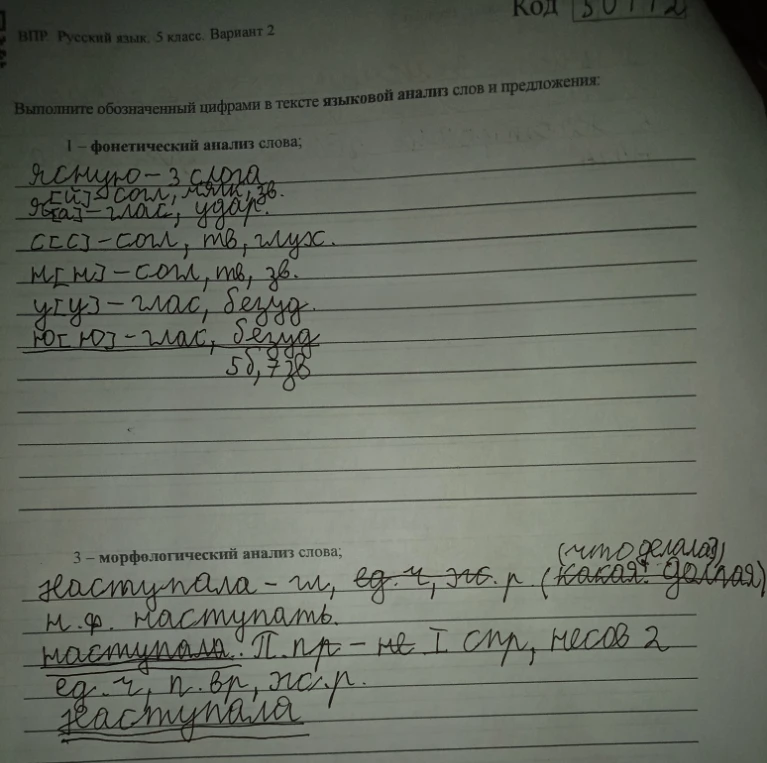 Код 50112
ВПР. Русский язык. 5 класс. Вариант 2
Выполните обозначенный цифрами в тексте языковой анализ слов и предложения:
1 – фонетический анализ слова;
ясную – 3 слога
[й] – согл, мягк, зв.
я[а] – глас, удар.
с[с] – согл, тв, глух.
н[н] – согл, тв, зв.
у[у] – глас, безуд.
ю[ю] – глас, безуд
5б, 7зв
3 – морфологический анализ слова;
(что делала?)
наступала – гл, ед. ч, ж. р (какая?
н. ф. наступать.
наступала. П. пр – не I спр, несов 2
ед. ч, п. вр, ж. р.
наступала